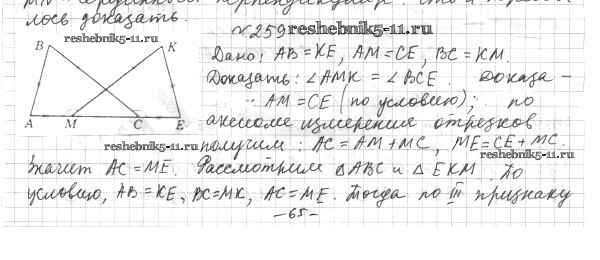 лось доказать.
reshebnik5-11.ru
№259 reshebnik5-11.ru
B K
A M C E
Дано: AB = KE, AM = CE, BC = KM.
Доказать: ∠AMK = ∠BCE. Доказа-
AM = CE (по условию); по
аксиоме измерения отрезков
reshebnik5-11.ru получим: AC = AM + MC, ME = CE + MC.
reshebnik5-11.ru
Значит AC = ME. Рассмотрим △ABC и △EKM. По
условию, AB = KE, BC = MK, AC = ME. Тогда по III признаку
-65-